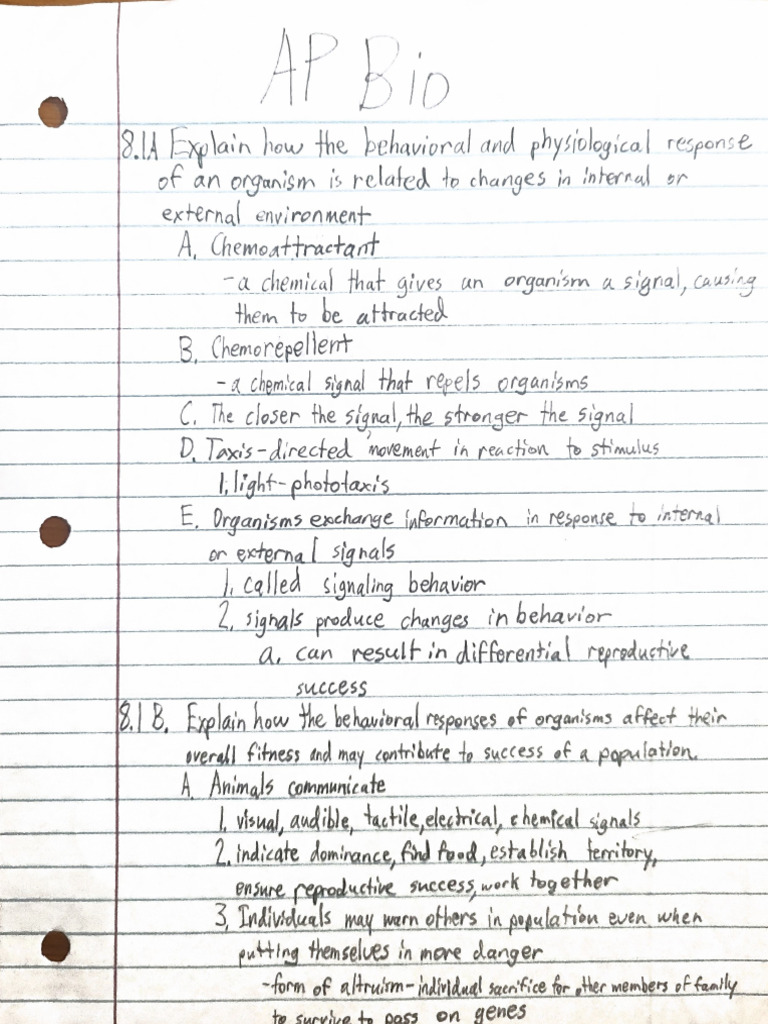 AP Bio
8.1A Explain how the behavioral and physiological response
of an organism is related to changes in internal or
external environment
A. Chemoattractant
-a chemical that gives an organism a signal, causing
them to be attracted
B. Chemorepellent
-a chemical signal that repels organisms
C. The closer the signal, the stronger the signal
D. Taxis-directed movement in reaction to stimulus
1. light-phototaxis
E. Organisms exchange information in response to internal
or external signals
1. called signaling behavior
2. signals produce changes in behavior
a. can result in differential reproductive
success
8.1 B. Explain how the behavioral responses of organisms affect their
overall fitness and may contribute to success of a population.
A. Animals communicate
1. visual, audible, tactile, electrical, chemical signals
2. indicate dominance, find food, establish territory,
ensure reproductive success, work together
3. Individuals may warn others in population even when
putting themselves in more danger
-form of altruism-individual sacrifice for other members of family
to survive to pass on genes